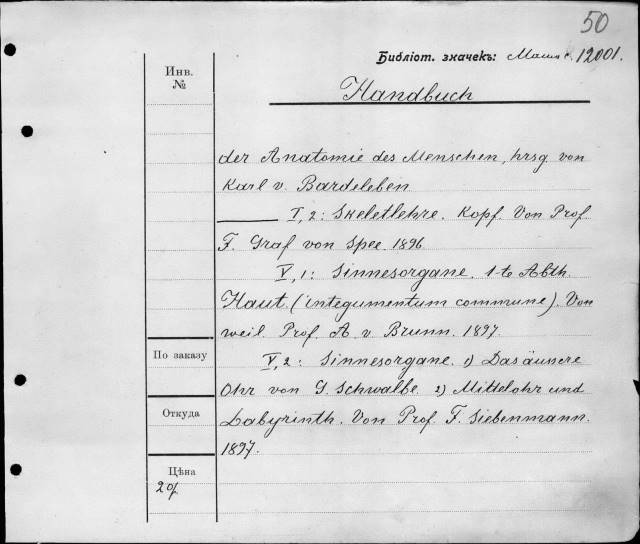 50
Библіот. значекъ: 12001.
Инв.
№
Handbuch
der Anatomie des Menschen, hrsg. von
Karl v. Bardeleben
I, 2: Skeletlehre. Kopf. Von Prof
F. Graf von Spee. 1896.
V, 1: Sinnesorgane. 1-te Abth.
Haut. (integumentum commune). Von
weil. Prof. A. v. Brunn. 1897.
По заказу
V, 2: Sinnesorgane. 1) Das äussere
Ohr von G. Schwalbe. 2) Mittelohr und
Откуда
Labyrinth. Von Prof. F. Siebenmann.
1897.
Цѣна